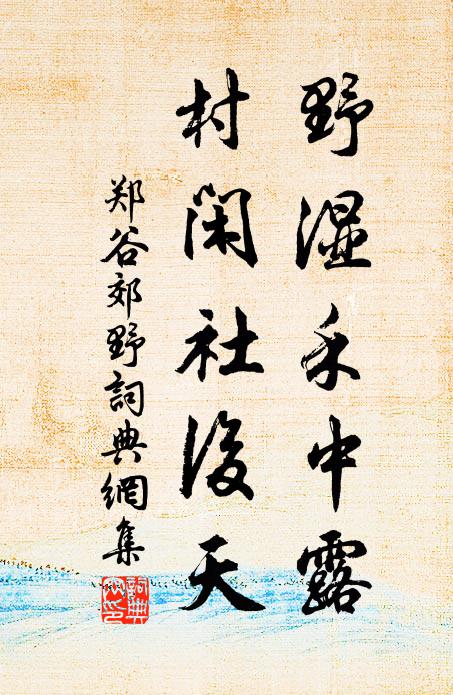 野湿禾中露
村闲社後天
郑谷郊野詞典網集